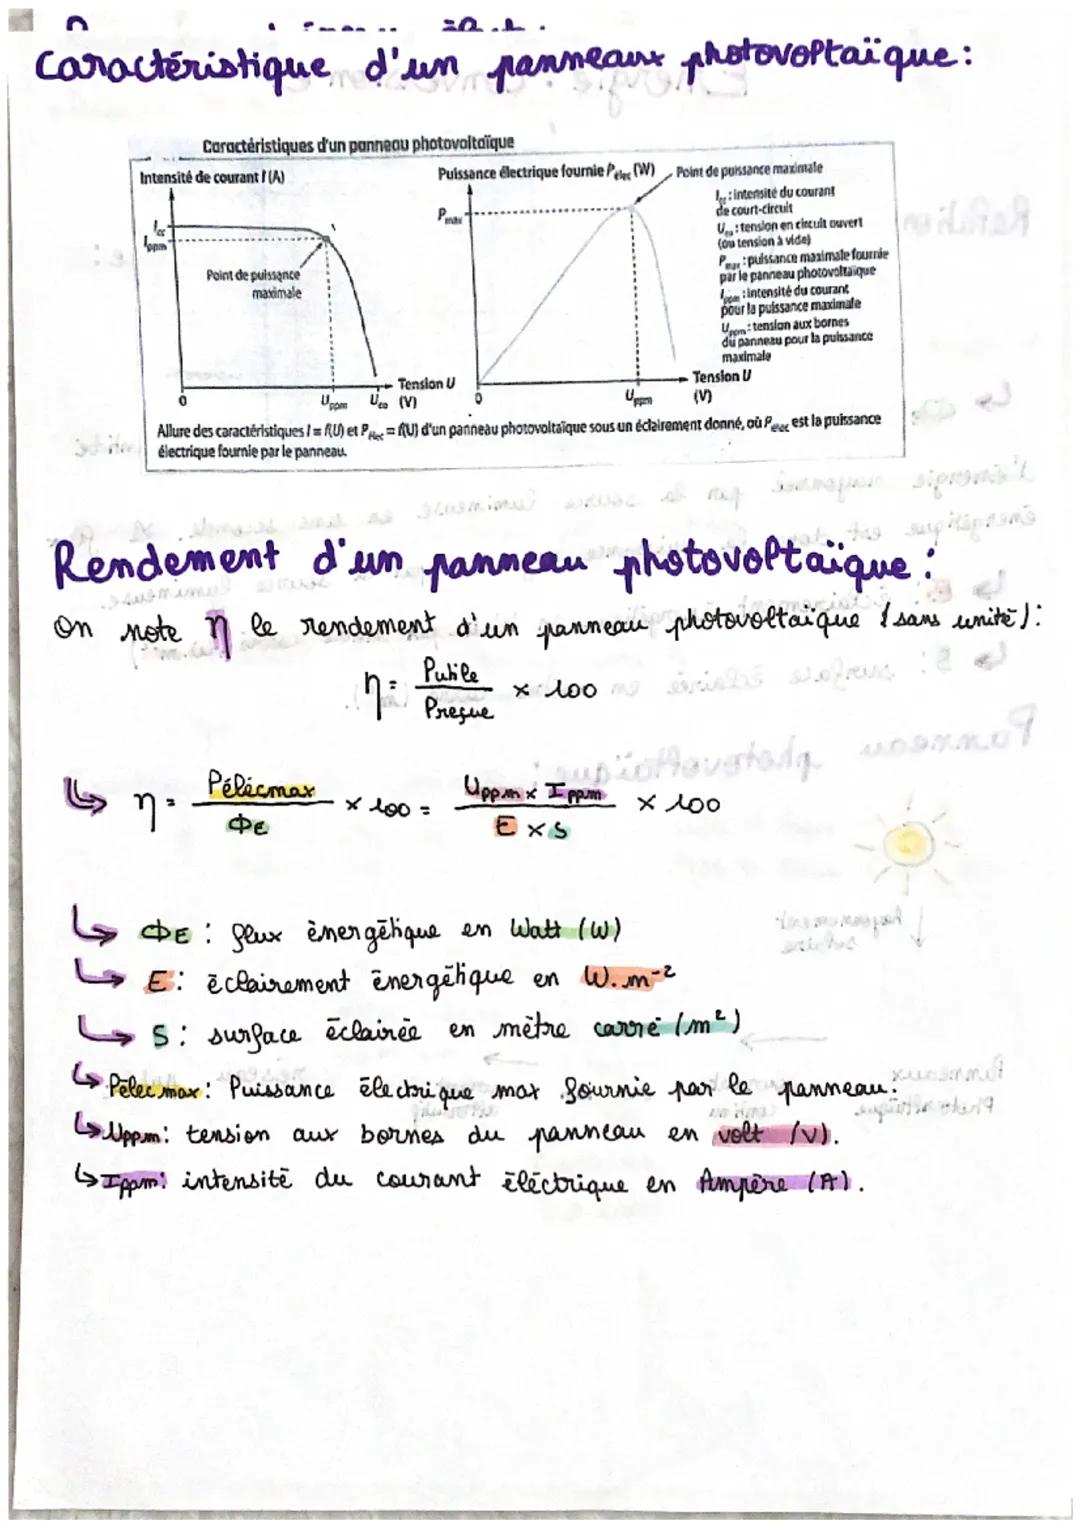 Caractéristique d'un panneaux photovoltaïque :
Caractéristiques d'un panneau photovoltaïque
Intensité de courant I (A)
Icc
Ippm
Point de puissance
maximale
0
Uppm
Uco
Tension U
(V)
Puissance électrique fournie Pélec (W)
Pmax
Point de puissance maximale
0
Uppm
Tension U
(V)
Icc : intensité du courant
de court-circuit
Uco : tension en circuit ouvert
(ou tension à vide)
Pmax : puissance maximale fournie
par le panneau photovoltaïque
Ippm : intensité du courant
pour la puissance maximale
Uppm : tension aux bornes
du panneau pour la puissance
maximale
Allure des caractéristiques I = f(U) et Pélec = f(U) d'un panneau photovoltaïque sous un éclairement donné, où Pélec est la puissance
électrique fournie par le panneau.
Rendement d'un panneau photovoltaïque :
On note η le rendement d'un panneau photovoltaïque (sans unité) :
η = Putile / Preçue × 100
↳ η = Pélecmax / ΦE × 100 = Uppm × Ippm / E × S × 100
↳ ΦE : flux énergétique en Watt (W)
↳ E : éclairement énergétique en W.m⁻²
↳ S : surface éclairée en mètre carré (m²)
↳ Pélec max : Puissance électrique max fournie par le panneau.
↳ Uppm : tension aux bornes du panneau en volt (V).
↳ Ippm : intensité du courant éléctrique en Ampère (A).